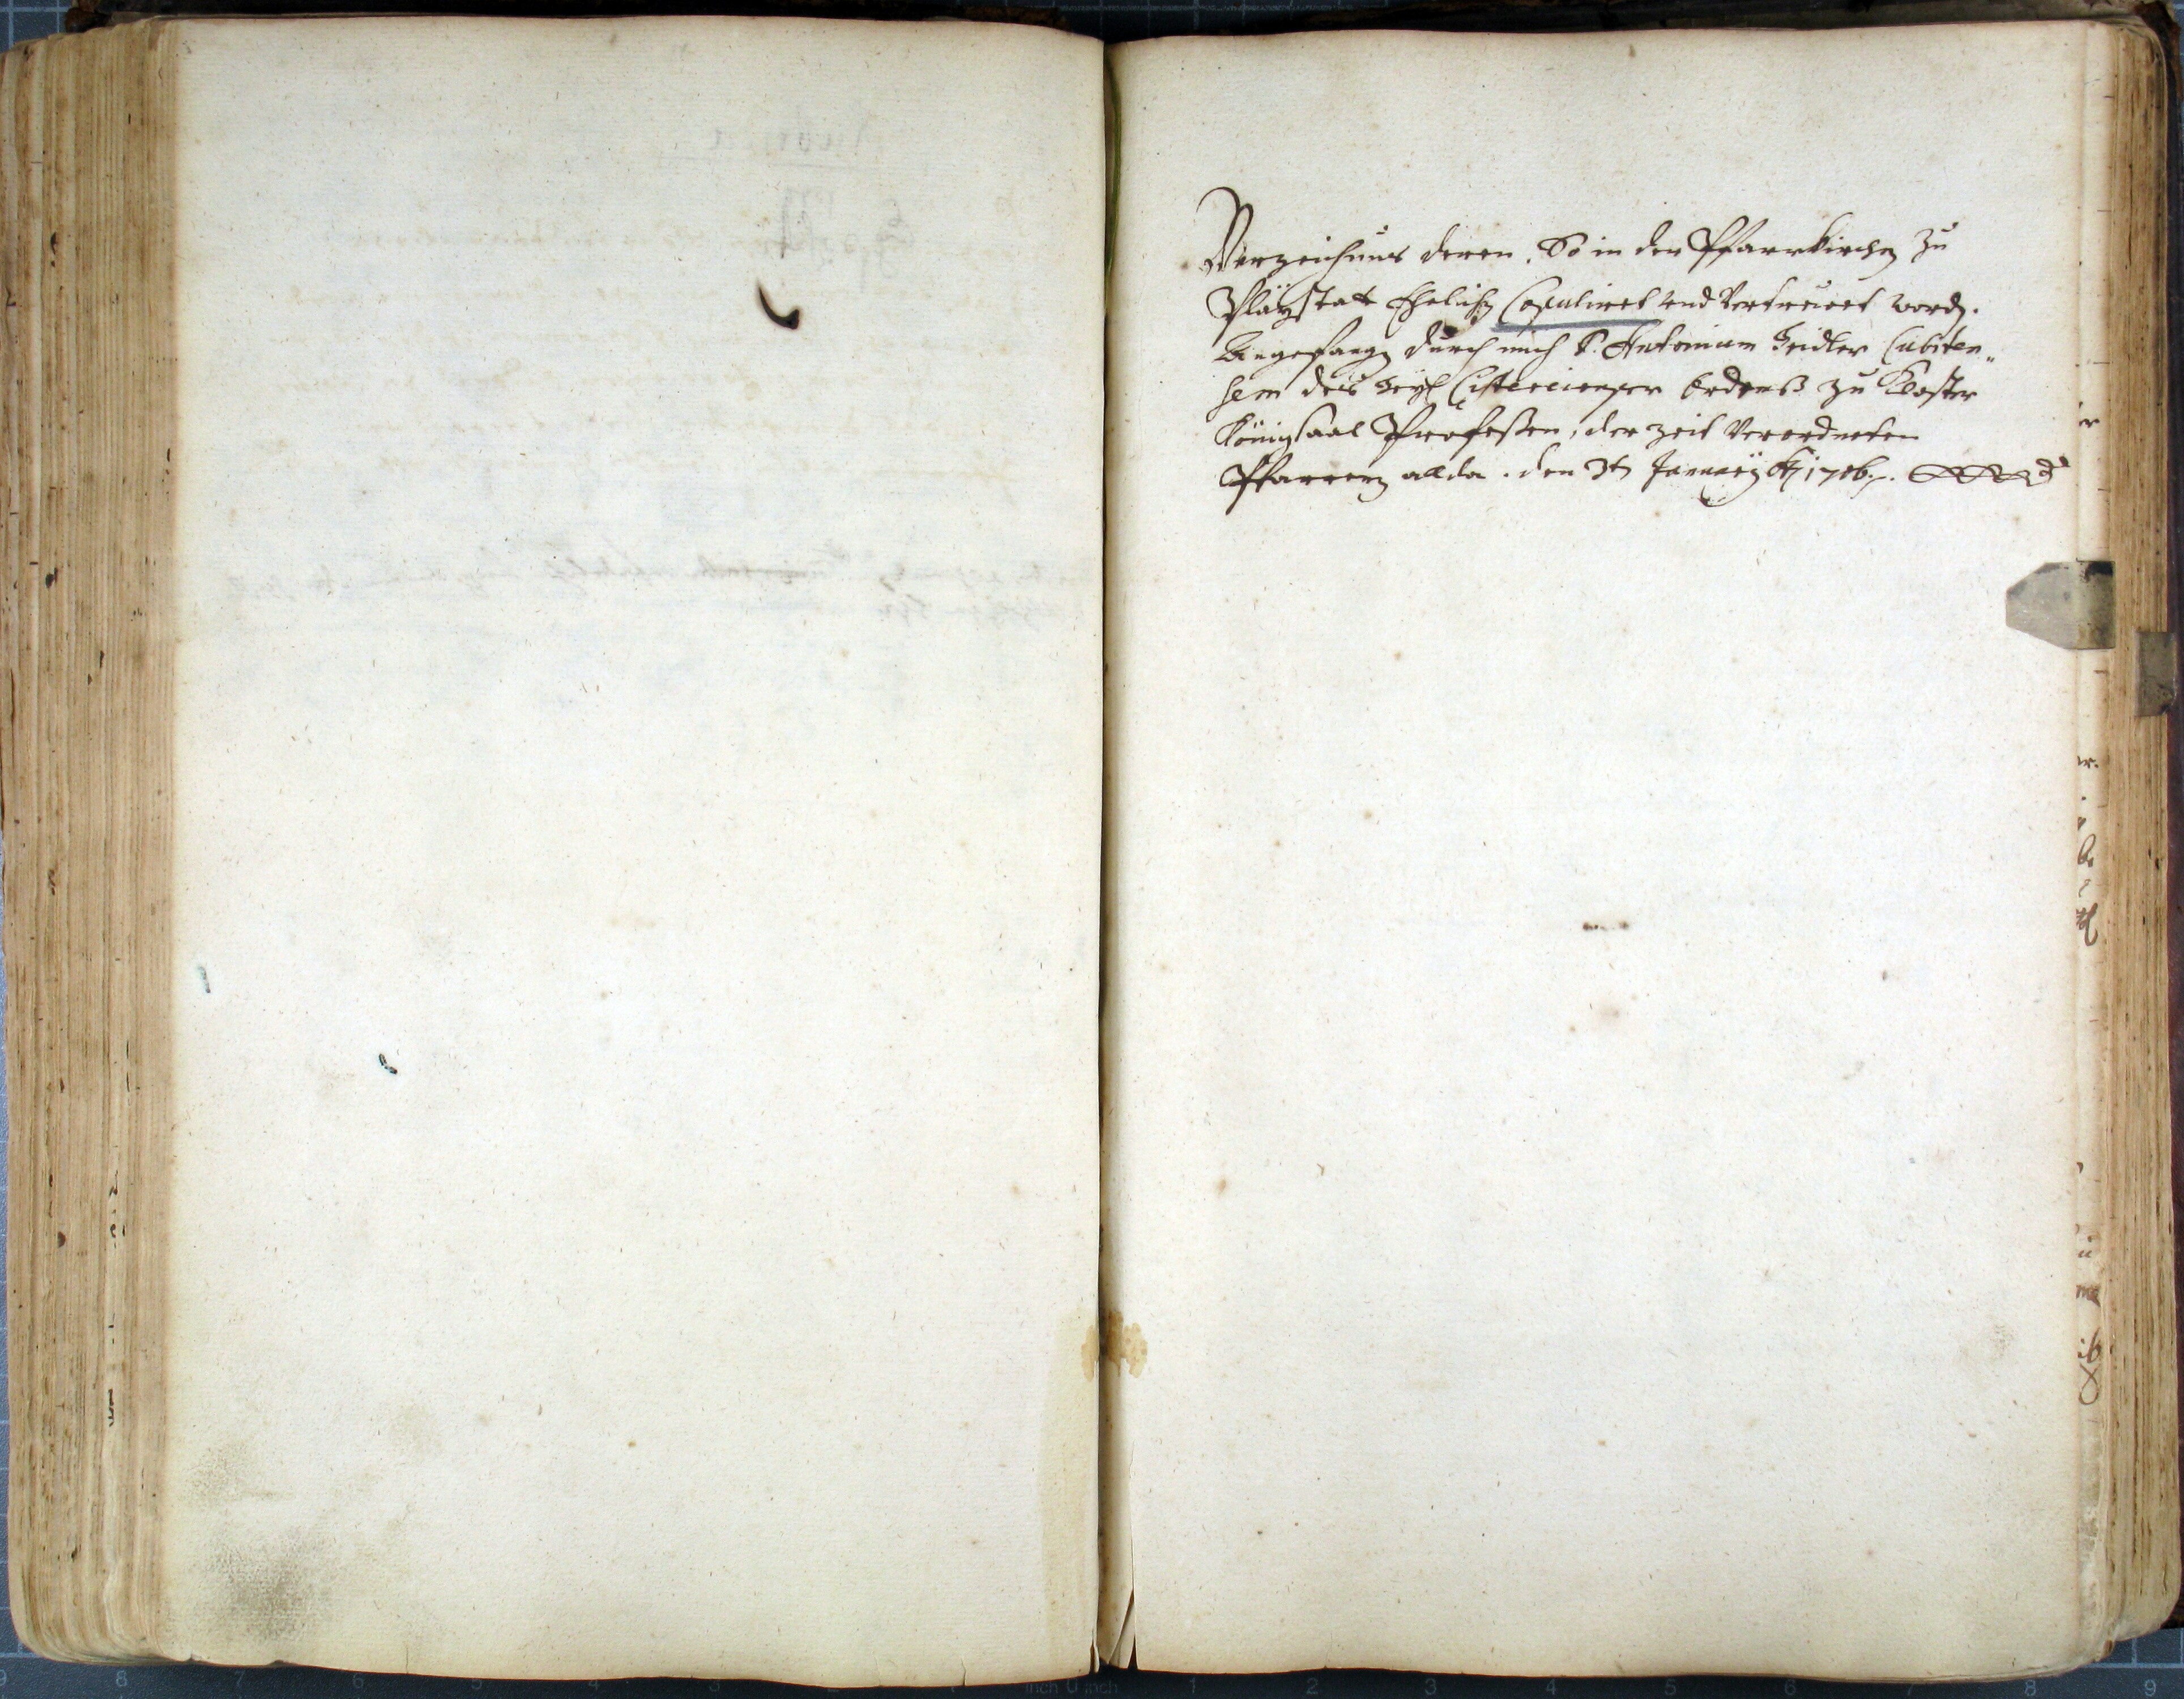 Verzeichnus deren, So in der Pfarrkirchen zu
Pläystatt Ehelichen Copuliret und Vertreuet worden.
Angefangen durch mich P. Antonium Seidler Cubiten„
sem des Heyl Cistercienser Ordenß zu Kloster
Königsaal Professen, der zeit Verordneten
Pfarrern allda. den 3ten Januarÿ 1706.